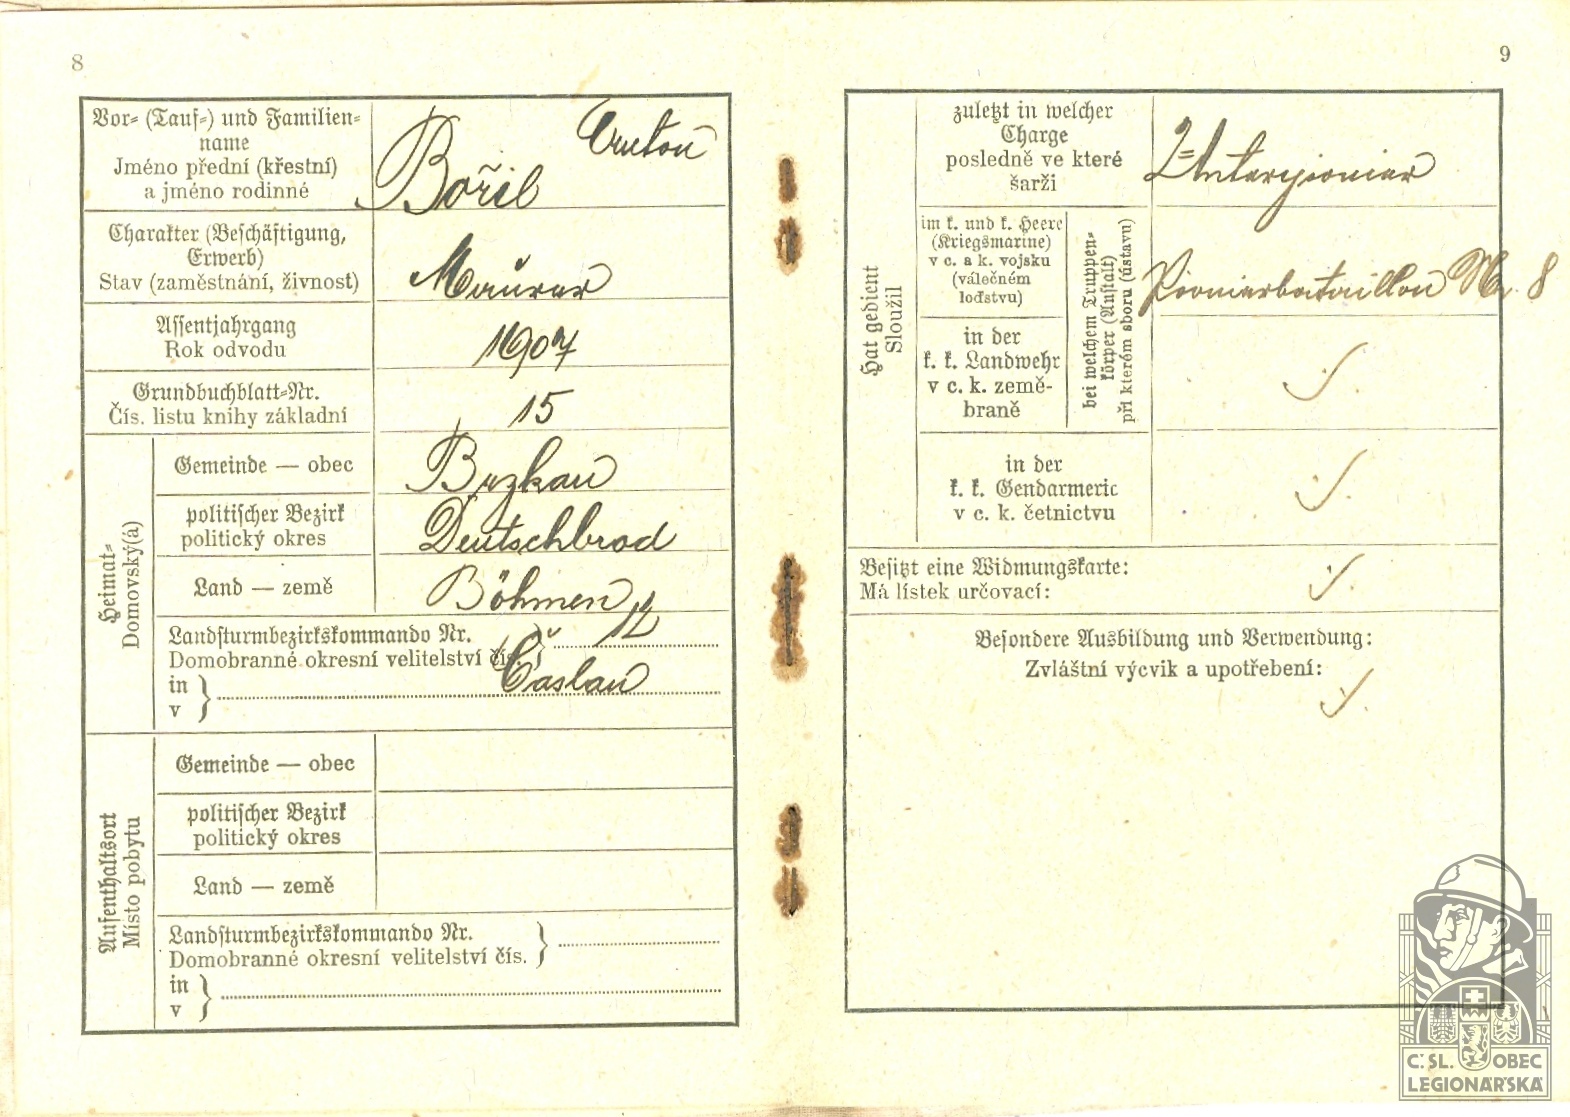 8
Vor- (Tauf-) und Familien-
name
Jméno přední (křestní)
a jméno rodinné
Anton
Bořil
Charakter (Beschäftigung,
Erwerb)
Stav (zaměstnání, živnost)
Maurer
Assentjahrgang
Rok odvodu
1907
Grundbuchblatt-Nr.
Čís. listu knihy základní
15
Heimat-
Domovský(á)
Gemeinde — obec
Bezkau
politischer Bezirk
politický okres
Deutschbrod
Land — země
Böhmen
Landsturmbezirkskommando Nr.
Domobranné okresní velitelství čís.
12
in
v
Časlau
Aufenthaltsort
Místo pobytu
Gemeinde — obec
politischer Bezirk
politický okres
Land — země
Landsturmbezirkskommando Nr.
Domobranné okresní velitelství čís.
in
v
9
Hat gedient
Sloužil
zuletzt in welcher
Charge
posledně ve které
šarži
Unterpionier
im k. und k. Heere
(Kriegsmarine)
v c. a k. vojsku
(válečném
loďstvu)
in der
k. k. Landwehr
v c. k. země-
braně
bei welchem Truppen-
körper (Anstalt)
při kterém sboru (ústavu)
Pionierbataillon Nr. 8
in der
k. k. Gendarmerie
v c. k. četnictvu
Besitzt eine Widmungskarte:
Má lístek určovací:
Besondere Ausbildung und Verwendung:
Zvláštní výcvik a upotřebení:
Č.SL. OBEC
LEGIONÁŘSKÁ